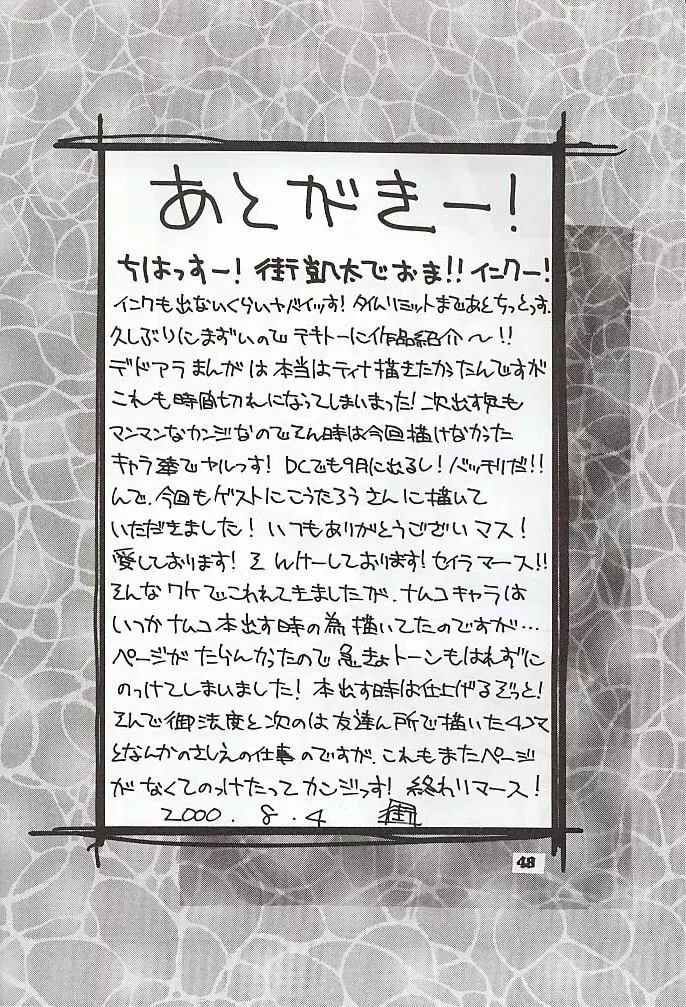 あとがきー!
ちはっすー! 街凱太でおま!! インクー!
インクも出ないくらいヤバイッす! タイムリミットまであとちっとっす.
久しぶりにまずいのでテキトーに作品紹介〜!!
デドアラまんがは本当はティナ描きたかったんですが
これも時間切れになってしまいまった! 次出す
マンマンなカンジなのでそん時は今回描けなかった
キャラ達でヤルっす! DCでも9月に出るし! バッチリだ!!
んで、今回もゲストにこうたろうさんに描いて
いただきました! いつもありがとうございマス!
愛しております! そんけーしております! セイラマース!!
そんなワケでこわれてきましたが、ナムコキャラは
いつかナムコ本出す時の為描いてたのですが…
ページがたらんかったので急きょトーンもはれずに
のっけてしまいました! 本出す時は仕上げるぞっと!
そんで御法度と次のは友達ん所で描いた4コマ
となんかのさしえの仕事のですが、これもまたページ
がなくてのっけたってカンジっす! 終わりマース!
2000.8.4 街
48